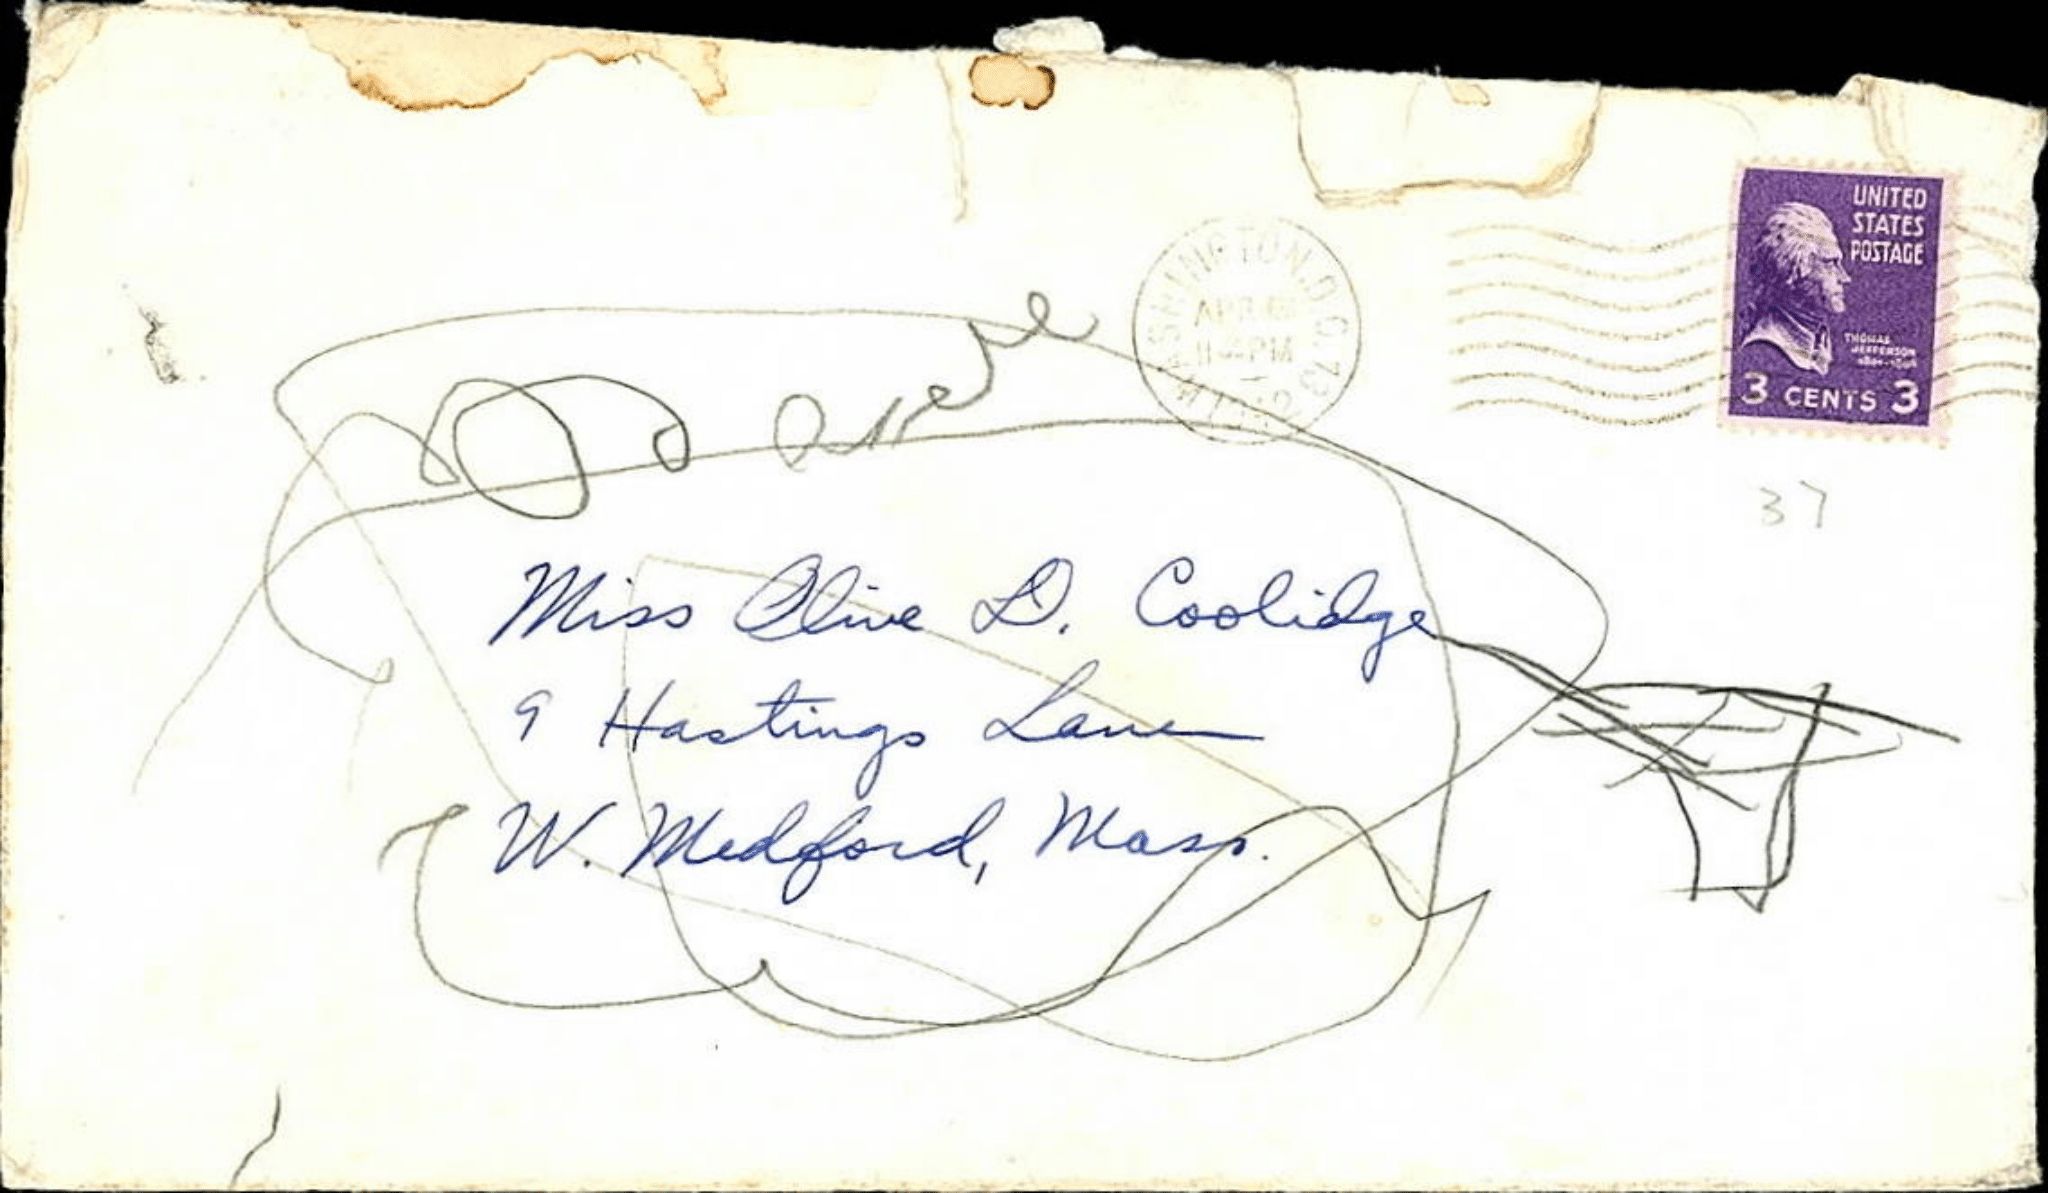 WASHINGTON, D.C. 13
APR 6
11 PM
UNITED
STATES
POSTAGE
THOMAS
JEFFERSON
3 CENTS 3
37
Miss Olive D. Coolidge
9 Hastings Lane
W. Medford, Mass.